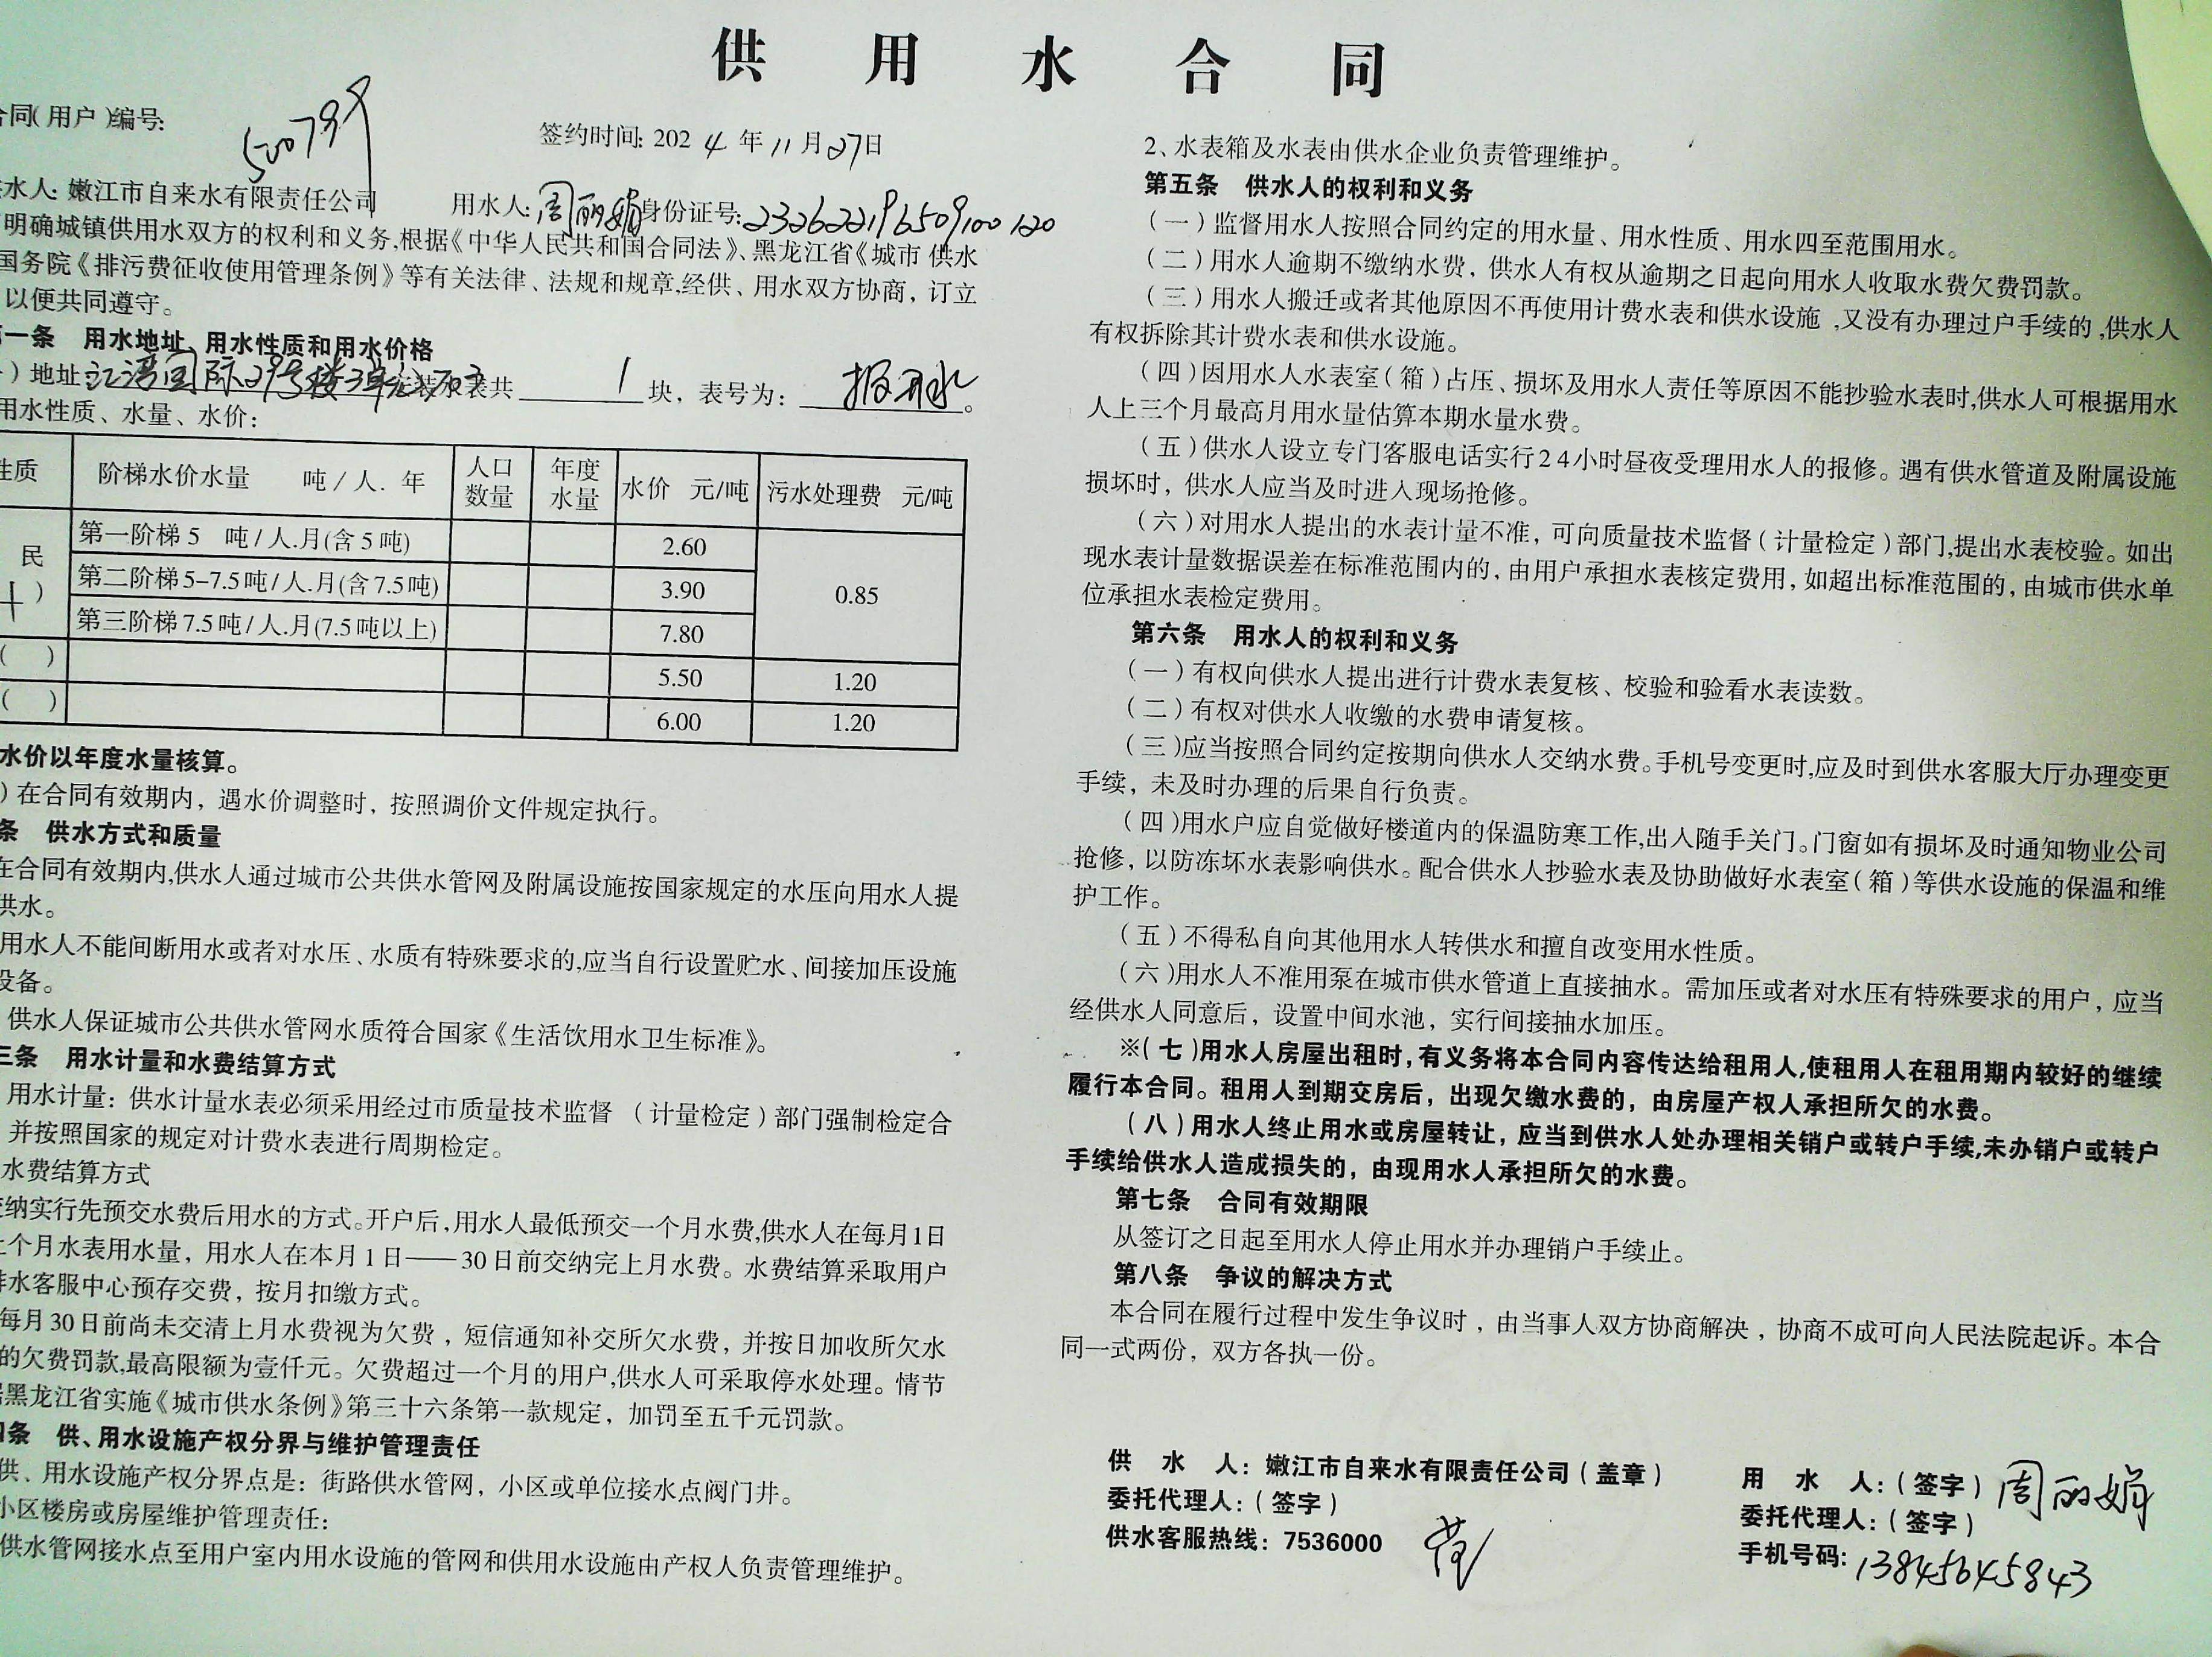 供用水合同
合同(用户)编号:
签约时间: 2024年11月27日
水人: 嫩江市自来水有限责任公司 用水人: 周丽娟 身份证号:
明确城镇供用水双方的权利和义务,根据《中华人民共和国合同法》、黑龙江省《城市 供水
国务院《排污费征收使用管理条例》等有关法律、法规和规章,经供、用水双方协商，订立
以便共同遵守。
一条 用水地址、用水性质和用水价格
)地址: 江湾国际29号楼 装水表共 1 块，表号为：
用水性质、水量、水价：
性质 阶梯水价水量 吨/人.年 人口数量 年度水量 水价 元/吨 污水处理费 元/吨
民 第一阶梯 5 吨/人.月(含 5 吨) 2.60 0.85
第二阶梯 5-7.5 吨/人.月(含 7.5 吨) 3.90
第三阶梯 7.5 吨/人.月(7.5 吨以上) 7.80
( ) 5.50 1.20
( ) 6.00 1.20
水价以年度水量核算。
)在合同有效期内，遇水价调整时，按照调价文件规定执行。
条 供水方式和质量
在合同有效期内,供水人通过城市公共供水管网及附属设施按国家规定的水压向用水人提
供水。
用水人不能间断用水或者对水压、水质有特殊要求的,应当自行设置贮水、间接加压设施
设备。
供水人保证城市公共供水管网水质符合国家《生活饮用水卫生标准》。
三条 用水计量和水费结算方式
用水计量：供水计量水表必须采用经过市质量技术监督 （计量检定）部门强制检定合
并按照国家的规定对计费水表进行周期检定。
水费结算方式
纳实行先预交水费后用水的方式。开户后,用水人最低预交一个月水费,供水人在每月1日
个月水表用水量，用水人在本月 1 日——30 日前交纳完上月水费。水费结算采取用户
水客服中心预存交费，按月扣缴方式。
每月 30 日前尚未交清上月水费视为欠费，短信通知补交所欠水费，并按日加收所欠水
的欠费罚款,最高限额为壹仟元。欠费超过一个月的用户,供水人可采取停水处理。情节
黑龙江省实施《城市供水条例》第三十六条第一款规定，加罚至五千元罚款。
条 供、用水设施产权分界与维护管理责任
供、用水设施产权分界点是：街路供水管网，小区或单位接水点阀门井。
小区楼房或房屋维护管理责任：
供水管网接水点至用户室内用水设施的管网和供用水设施由产权人负责管理维护。
2、水表箱及水表由供水企业负责管理维护。
第五条 供水人的权利和义务
（一）监督用水人按照合同约定的用水量、用水性质、用水四至范围用水。
（二）用水人逾期不缴纳水费，供水人有权从逾期之日起向用水人收取水费欠费罚款。
（三）用水人搬迁或者其他原因不再使用计费水表和供水设施,又没有办理过户手续的,供水人
有权拆除其计费水表和供水设施。
（四）因用水人水表室（箱）占压、损坏及用水人责任等原因不能抄验水表时,供水人可根据用水
人上三个月最高月用水量估算本期水量水费。
（五）供水人设立专门客服电话实行24小时昼夜受理用水人的报修。遇有供水管道及附属设施
损坏时，供水人应当及时进入现场抢修。
（六）对用水人提出的水表计量不准，可向质量技术监督（计量检定）部门,提出水表校验。如出
现水表计量数据误差在标准范围内的，由用户承担水表核定费用，如超出标准范围的，由城市供水单
位承担水表检定费用。
第六条 用水人的权利和义务
（一）有权向供水人提出进行计费水表复核、校验和验看水表读数。
（二）有权对供水人收缴的水费申请复核。
（三）应当按照合同约定按期向供水人交纳水费。手机号变更时,应及时到供水客服大厅办理变更
手续，未及时办理的后果自行负责。
（四）用水户应自觉做好楼道内的保温防寒工作,出入随手关门。门窗如有损坏及时通知物业公司
抢修，以防冻坏水表影响供水。配合供水人抄验水表及协助做好水表室（箱）等供水设施的保温和维
护工作。
（五）不得私自向其他用水人转供水和擅自改变用水性质。
（六）用水人不准用泵在城市供水管道上直接抽水。需加压或者对水压有特殊要求的用户，应当
经供水人同意后，设置中间水池，实行间接抽水加压。
※（七）用水人房屋出租时,有义务将本合同内容传达给租用人,使租用人在租用期内较好的继续
履行本合同。租用人到期交房后，出现欠缴水费的，由房屋产权人承担所欠的水费。
（八）用水人终止用水或房屋转让，应当到供水人处办理相关销户或转户手续,未办销户或转户
手续给供水人造成损失的，由现用水人承担所欠的水费。
第七条 合同有效期限
从签订之日起至用水人停止用水并办理销户手续止。
第八条 争议的解决方式
本合同在履行过程中发生争议时，由当事人双方协商解决，协商不成可向人民法院起诉。本合
同一式两份，双方各执一份。
供水人：嫩江市自来水有限责任公司（盖章） 用水人：（签字）周丽娟
委托代理人：（签字） 委托代理人：（签字）
供水客服热线：7536000 手机号码：13845645843